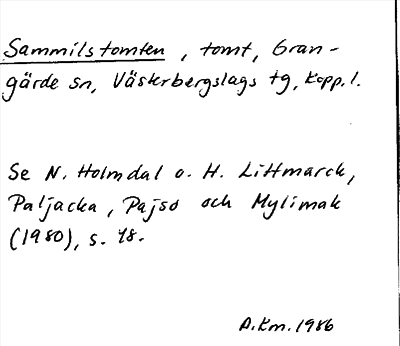 Sammilstomten, tomt, Gran-
gärde sn, Västerbergslags tg, Kopp. l.
Se N. Holmdal o. H. Littmarck,
Paljacka, Pajso och Mylimak
(1980), s. 48.
A.Km. 1986